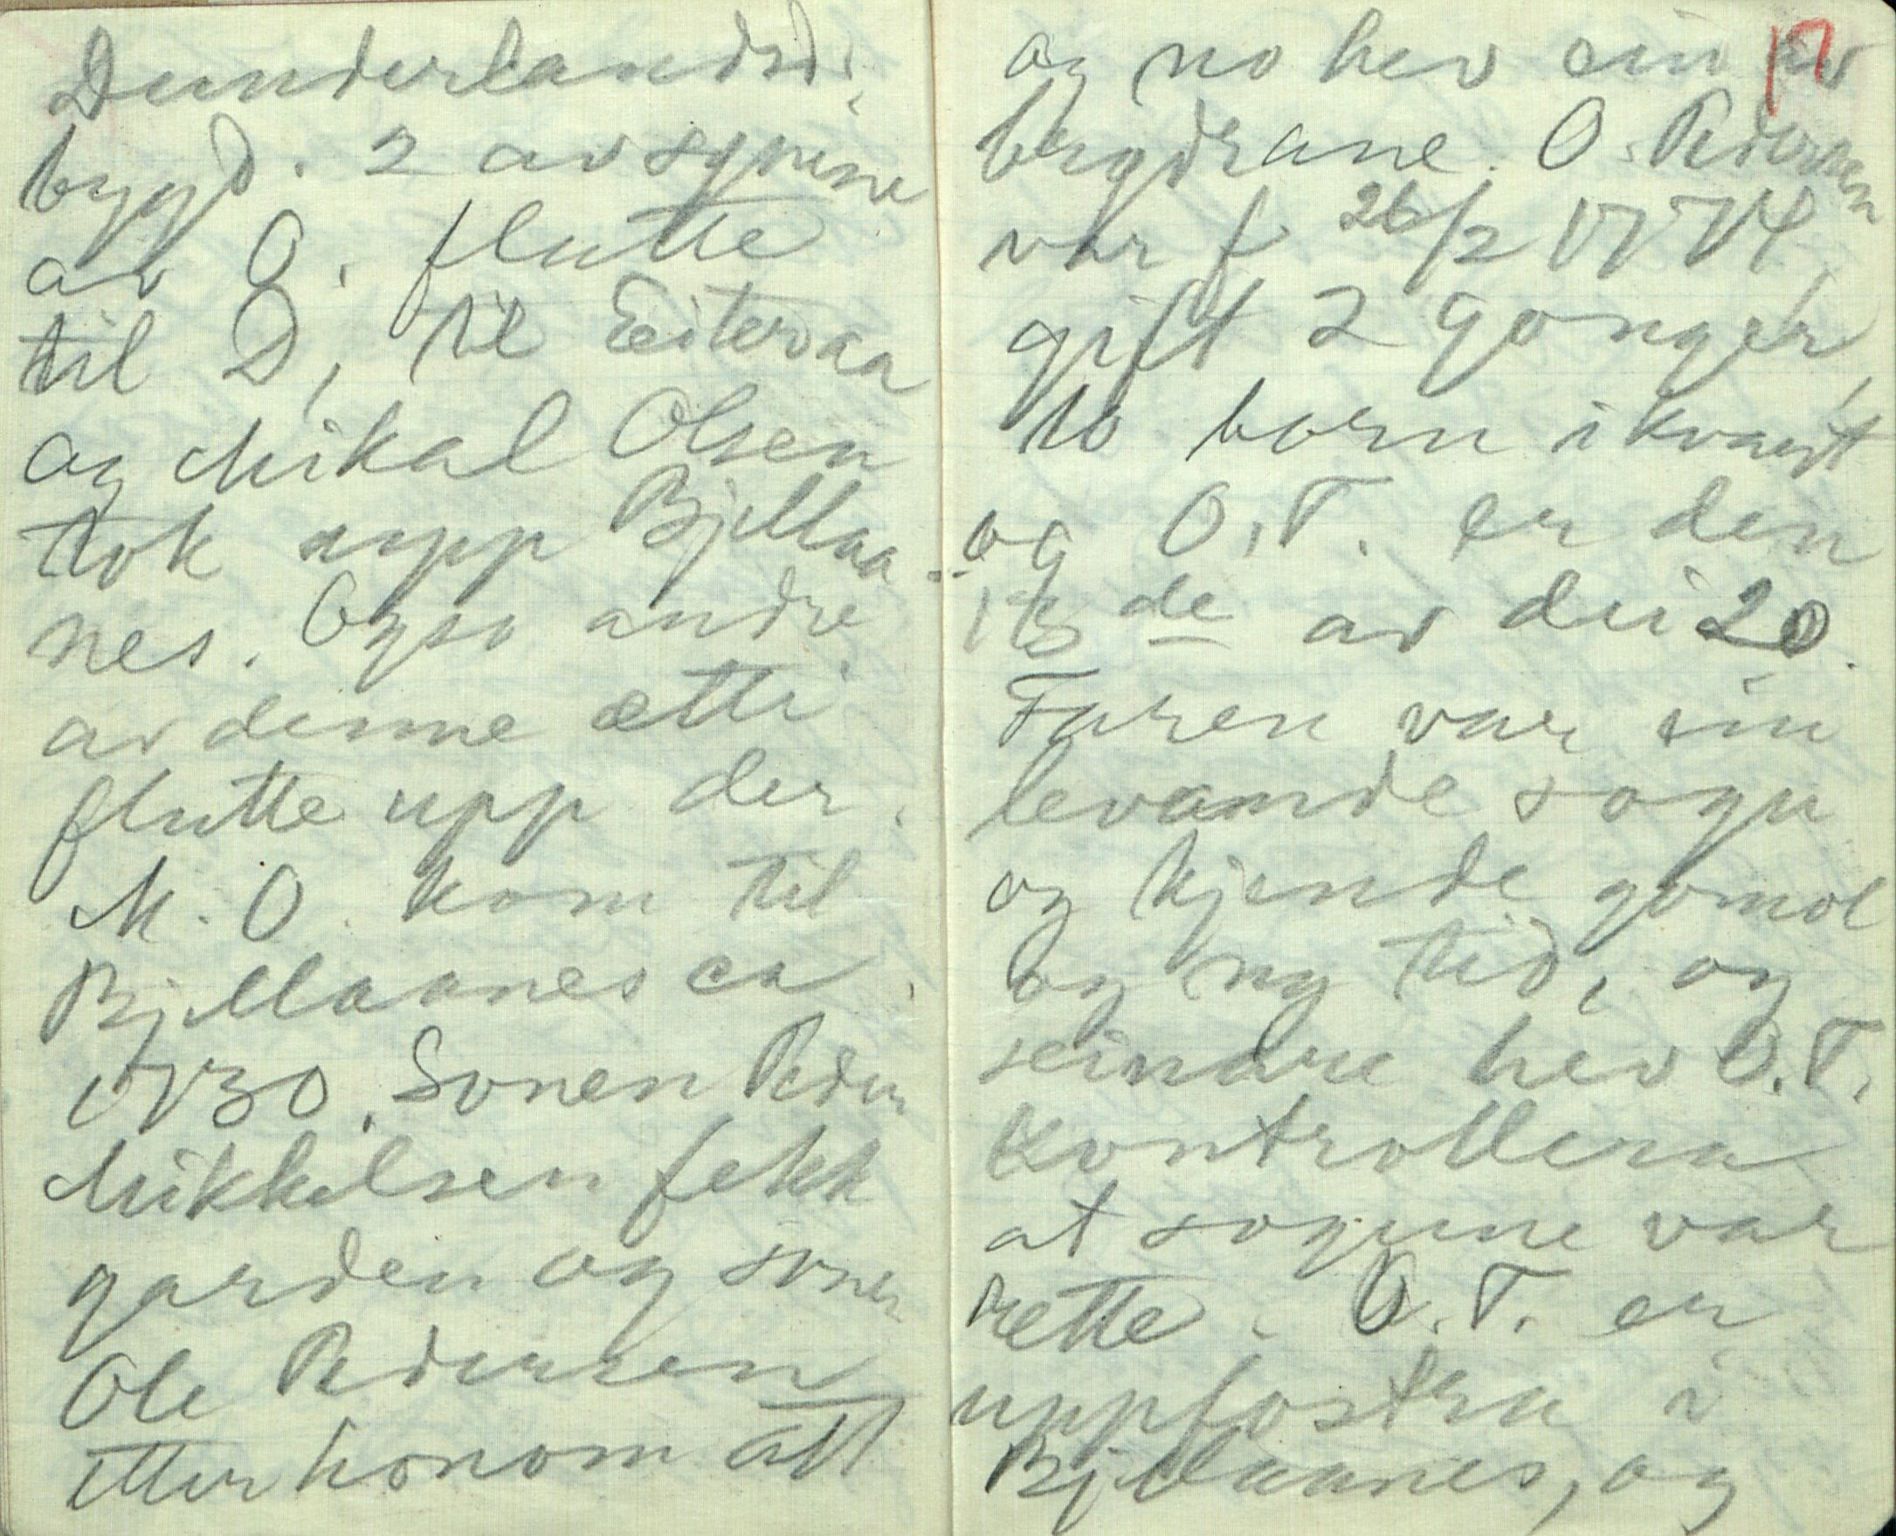 Dunderlandsd.
bygd. 2 av sønine
av O. flutte
til D, til Eiteraa
og Mikal Olsen
tok upp Bjellaa
nes. Ogso andre
av denne ætti
flutte upp der.
M. O. kom til
Bjellaanes ca
1730. Sonen Peder
Mikkelsen fekk
garden og sonen
Ole Pedersen
etter honom att
17
og no hev ein av
brydrane. O. Pedersen
var f 26/2 1774,
gift 2 gonger,
10 born i kvart
og O. T. er den
de av dei 20.
Faren var ein
levande sogu
og kjende gomol
og ny tid, og
seinare hev O. T.
kontrollera
at sogune var
rette. O. T. er
uppfostra i
Bjellaanes, og